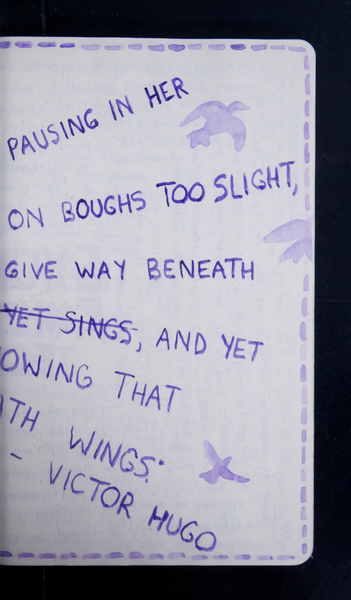 PAUSING IN HER
ON BOUGHS TOO SLIGHT,
GIVE WAY BENEATH
YET SINGS, AND YET
OWING THAT
TH WINGS."
- VICTOR HUGO